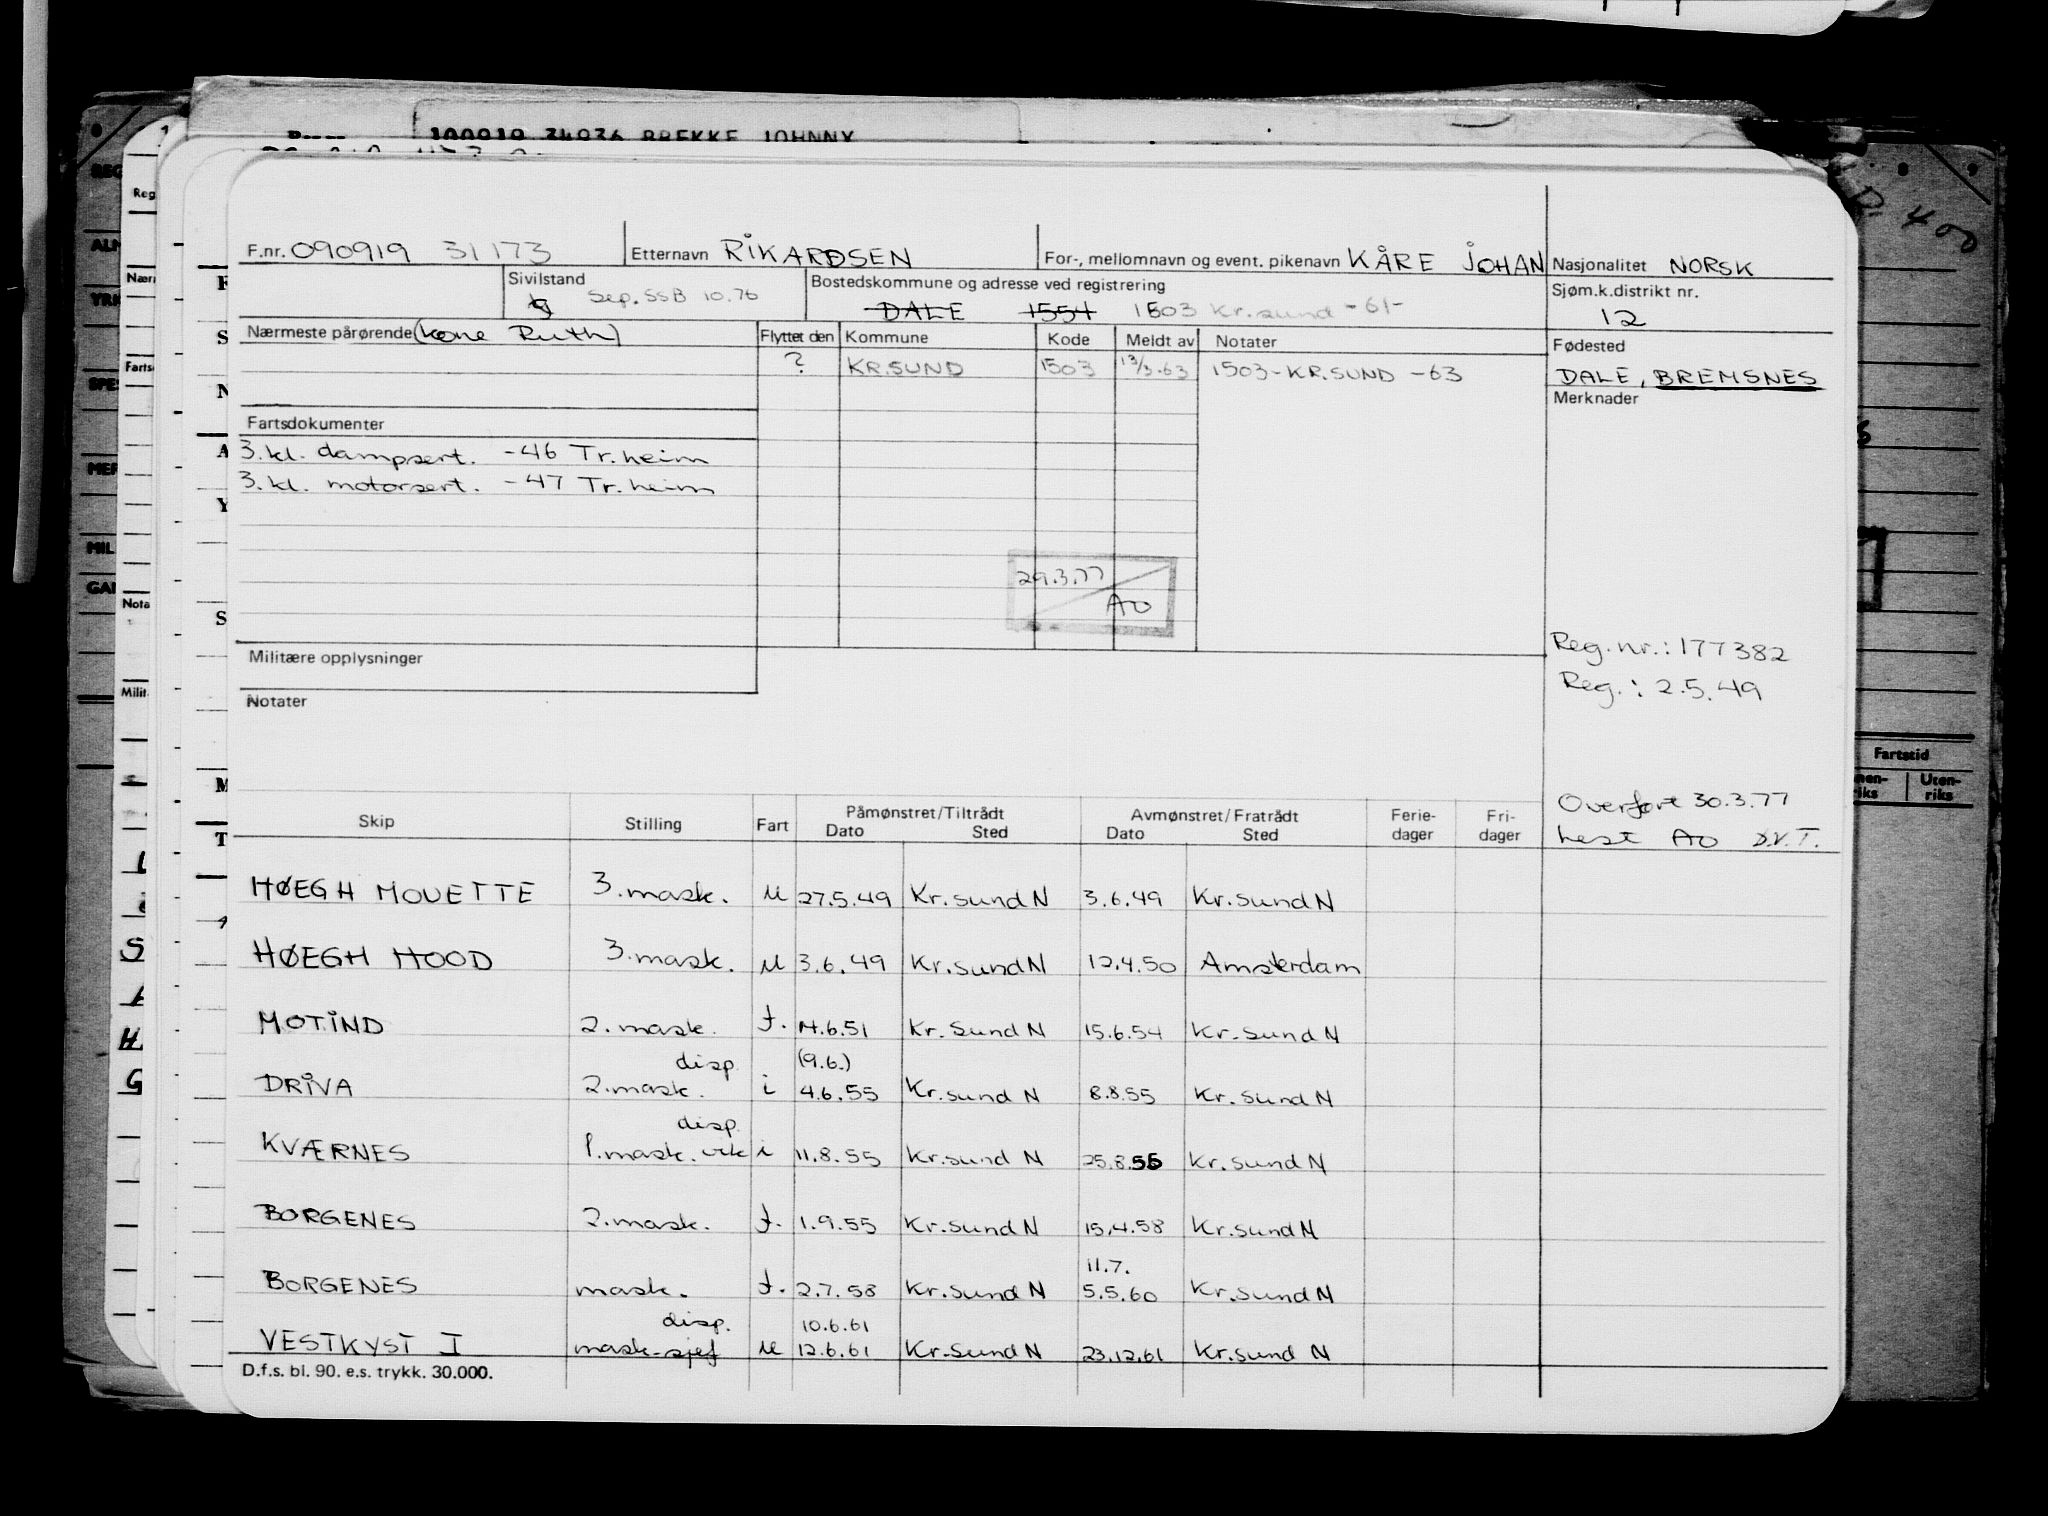 100919 34936 BREKKE JOHNNY
F.nr. 090919 31173 Etternavn RIKARDSEN For-, mellomnavn og event. pikenavn KÅRE JOHAN Nasjonalitet NORSK
Sivilstand g Sep. SSB 10.76 Bostedskommune og adresse ved registrering Sjøm.k.distrikt nr.
DALE 1554 1503 Kr.sund -61- 12
Nærmeste pårørende (kone Ruth) Flyttet den Kommune Kode Meldt av Notater Fødested
? KR.SUND 1503 13/3-63 1503-KR.SUND -63 DALE, BREMSNES
Merknader
Fartsdokumenter
3.kl. dampsert. -46 Tr.heim
3.kl. motorsert. -47 Tr.heim
29.3.77
AO
Reg.nr.: 177382
Militære opplysninger
Reg.: 2.5.49
Notater
Overført 30.3.77
hest AO D.V.T.
Skip Stilling Fart Påmønstret/Tiltrådt Avmønstret/Fratrådt Ferie- Fri-
Dato Sted Dato Sted dager dager
HØEGH MOUETTE 3.mask. u 27.5.49 Kr.sund N 3.6.49 Kr.sund N
HØEGH HOOD 3.mask. u 3.6.49 Kr.sund N 12.4.50 Amsterdam
MOTIND 2.mask. f. 14.6.51 Kr.Sund N 15.6.54 Kr.sund N
disp. (9.6.)
DRIVA 2.mask. i 4.6.55 Kr.sund N 8.8.55 Kr.sund N
disp.
KVÆRNES 1.mask.vik i 11.8.55 Kr.sund N 25.8.55 Kr.sund N
BORGENES 2.mask. f. 1.9.55 Kr.sund N 15.4.58 Kr.sund N
11.7.
BORGENES mask. f. 2.7.58 Kr.sund N 5.5.60 Kr.sund N
disp. 10.6.61
VESTKYST I mask.sjef u 12.6.61 Kr.sund N 23.12.61 Kr.sund N
D.f.s. bl. 90. e.s. trykk. 30.000.
Fartstid
Uten-
riks